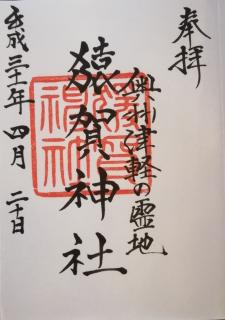 奉拝
奥州津軽の霊地
猿賀神社
平成三十一年四月二十日